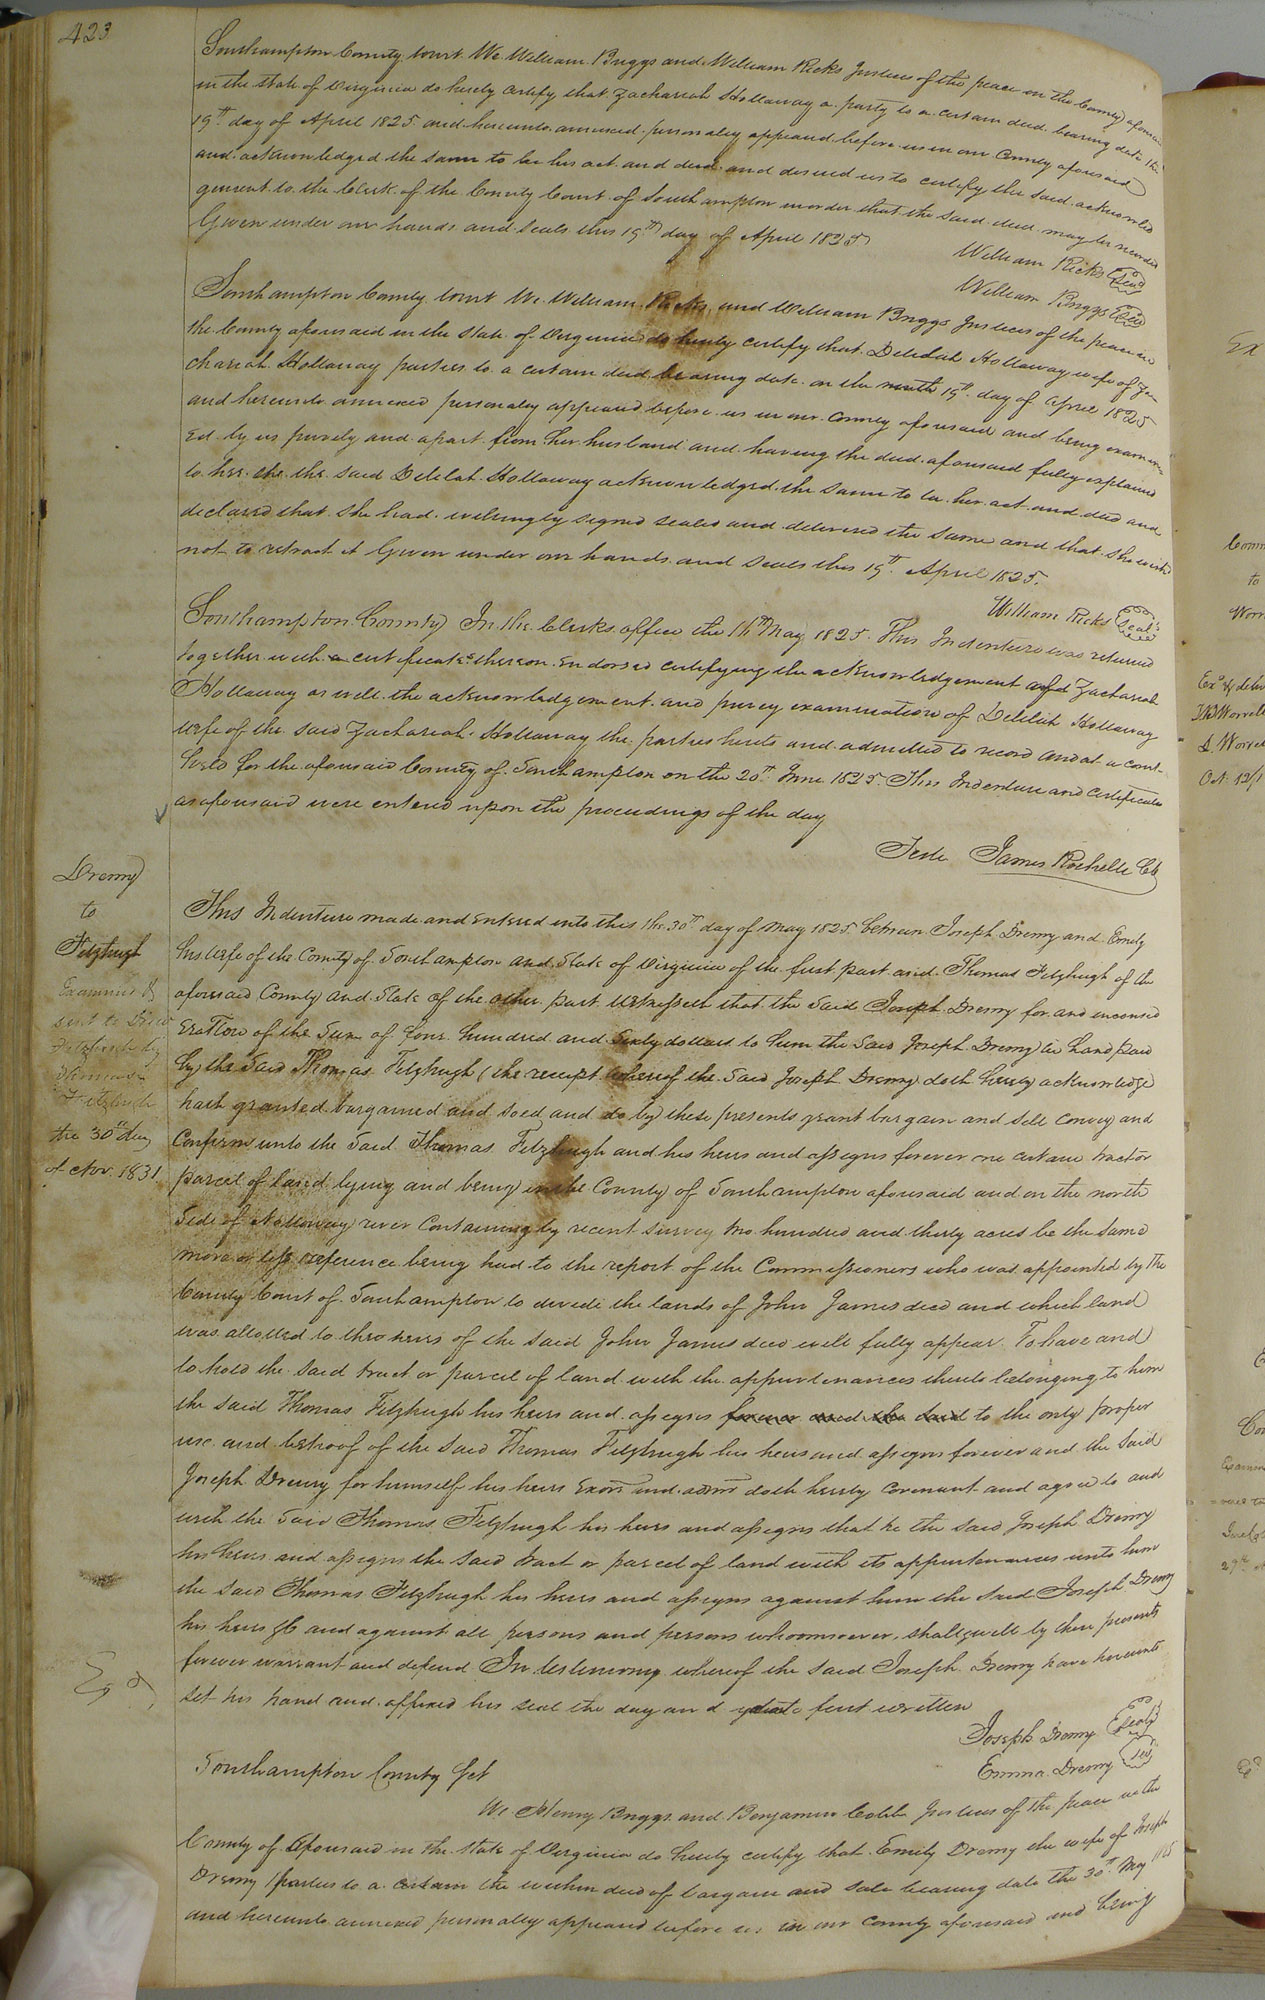 423
Southampton County Court We William Briggs and William Ricks Justices of the peace in the County aforesaid
in the State of Virginia do hereby certify that Zachariah Holloway a party to a certain deed bearing date the
19th day of April 1825 and hereunto annexed personaley appeared before us in our County aforesaid
and acknowledged the same to be his act and deed and desired us to certify the said acknowled
gement to the Clerk of the County Court of Southampton in order that the said deed may be recorded
Given under our hands and seals this 19th day of April 1825
William Ricks Seal
William Briggs Seal
Southampton County Court We William Ricks and William Briggs Justices of the peace in
the County aforesaid in the State of Virginia do hereby certify that Delilah Holloway wife of Za
chariah Holloway parties to a certain deed bearing date on the 19th day of April 1825
and hereunto annexed personaley appeared before us in our County aforesaid and being examin
ed by us privily and apart from her husband and having the deed aforesaid fully explained
to her she the said Delilah Holloway acknowledged the same to be her act and deed and
declared that she had willingly signed sealed and delivered the same and that she wished
not to retract it Given under our hands and seals this 19th April 1825.
William Ricks Seal
Southampton County In the Clerks office the 16th May 1825. This Indenture was returned
together with certificates thereon Endorsed certifying the acknowledgement of Zachariah
Holloway as well the acknowledgement and privy examination of Delilah Holloway
wife of the said Zachariah Holloway the parties hereto and admitted to record and at a court
held for the aforesaid County of Southampton on the 20th June 1825 This Indenture and certificates
as aforesaid were entered upon the proceedings of the day
Teste James Rochelle Clk
Drewry
to
Fitzhugh
Examined &
sent to
Fitzhugh by
Fitzhugh
the 30th day
of Nov. 1831
This Indenture made and Entered into this the 30th day of May 1825 between Joseph Drewry and Emily
his wife of the County of Southampton and State of Virginia of the first part and Thomas Fitzhugh of the
aforesaid County and State of the other part Witnesseth that the Said Joseph Drewry for and inconsid
eration of the Sum of four hundred and Sixty dollars to him the Said Joseph Drewry in hand paid
by the Said Thomas Fitzhugh (the receipt whereof the Said Joseph Drewry doth hereby acknowledge
hath granted bargained and sold and do by these presents grant bargain and sell convey and
Confirm unto the Said Thomas Fitzhugh and his heirs and assigns forever one certain tract or
parcel of land lying and being in the County of Southampton aforesaid and on the north
Side of Nottoway river Containing by recent survey two hundred and thirty acres be the same
more or less reference being had to the report of the Commissioners who was appointed by the
County Court of Southampton to devide the lands of John James decd and which land
was allotted to the heirs of the said John James decd will fully appear. To have and
to hold the said tract or parcel of land with the appurtenances thereto belonging to him
the said Thomas Fitzhugh his heirs and assigns forever and the said to the only proper
use and behoof of the said Thomas Fitzhugh his heirs and assigns forever and the said
Joseph Drewry for himself his heirs Exors and admrs doth hereby covenant and agree to and
with the Said Thomas Fitzhugh his heirs and assigns that he the said Joseph Drewry
his heirs and assigns the said tract or parcel of land with its appurtenances unto him
the said Thomas Fitzhugh his heirs and assigns against him the said Joseph Drewry
his heirs &c and against all persons and persons whoomsoever, shall & will by these presents
forever warrant and defend In testimony whereof the said Joseph Drewry have hereunto
set his hand and affixed his seal the day and date first written
Exd
Joseph Drewry Seal
Emma Drewry Seal
Southampton County Sct
We Henry Briggs and Benjamin Cobb Justices of the peace in the
County of aforesaid in the State of Virginia do hereby certify that Emily Drewry the wife of Joseph
Drewry (parties to a certain the within deed of bargain and sale bearing date the 30th May 1825
and hereunto annexed personally appeared before us in our County aforesaid and being
Ex
to
Oct. 12/